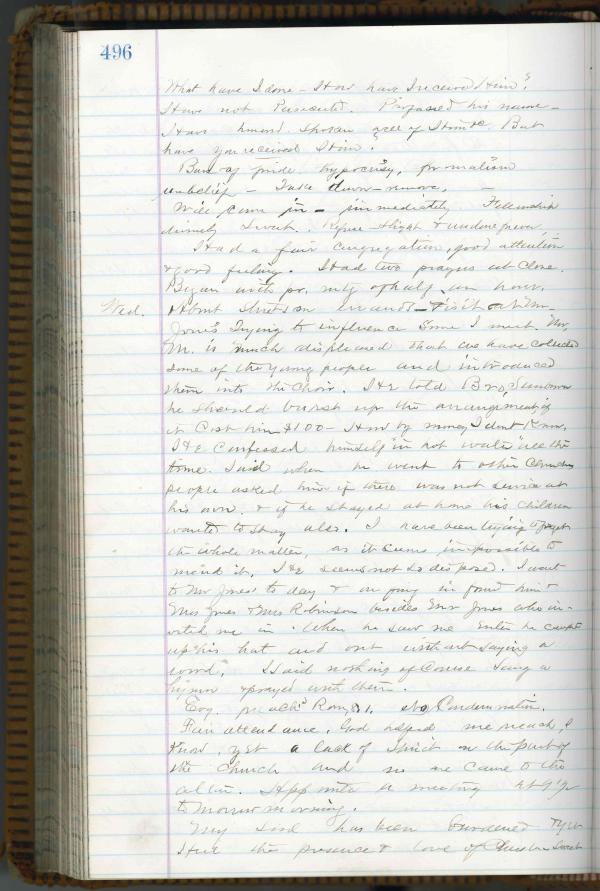 496
What have I done - How have I received Him?
Have not Persecuted. Professed his name -
Have heard spoken well of Him &c But
have you received Him?
Bars of pride hypocrisy, formalism
unbelief - Take down - remove. -
Will come in - immediately Fellowship
divinely sweet. Refuse slight & undone forever
Had a fair congregation, good attention
& good feeling. Had two prayers at close.
Began with pr. mtg of half an hour.
Wed. About Street on errands - Visit at Wm.
Jones Trying to influence some I meet. Mr.
M. is much displeased that we have collected
some of the young people and introduced
them into the Choir. He told Bro.
he should burst up the arrangement if
it Cost him $100 - How by money I dont Know.
He Confessed himself "in hot water" all the
time. Said when he went to other Churches
people asked him if there was not service at
his own. & if he stayed at home his children
wanted to stay also. I have been trying to forget
the whole matter, as it seems impossible to
mend it. He seems not so disposed. I went
to Mr Jones' to day & on going in found him &
Mrs Jones & Mrs Robinson besides Mr Jones who in-
vited me in. When he saw me enter he caught
up his hat and out without saying a
word. I said nothing of Course Sang a
hymn & prayed with them.
Evg. preachd Rom 8.1. No Condemnation.
Fair attendance. God helped me preach, I
know, yet a lack of Spirit on the part of
the Church and no one came to the
altar. Appointed a meeting at 9½
tomorrow morning.
My soul has been burdened
the presence & love of